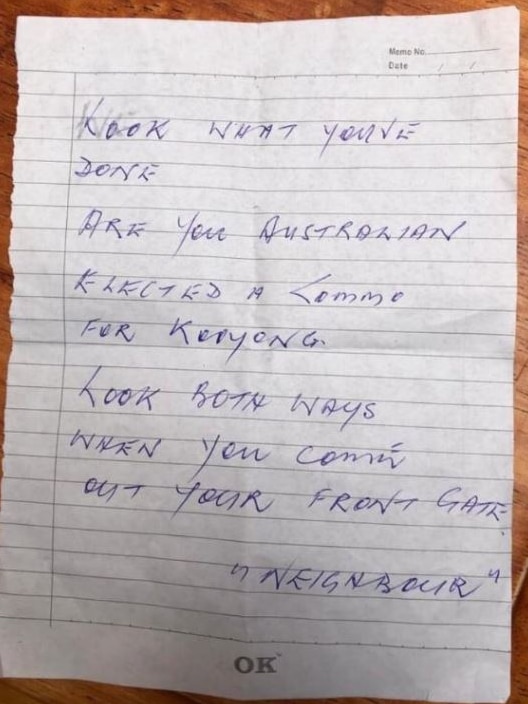 Memo No.
Date / /
LOOK WHAT YOU'VE
DONE
ARE YOU AUSTRALIAN
ELECTED A COMMO
FOR KOOYONG.
LOOK BOTH WAYS
WHEN YOU COME
OUT YOUR FRONT GATE.
"NEIGHBOUR"
OK